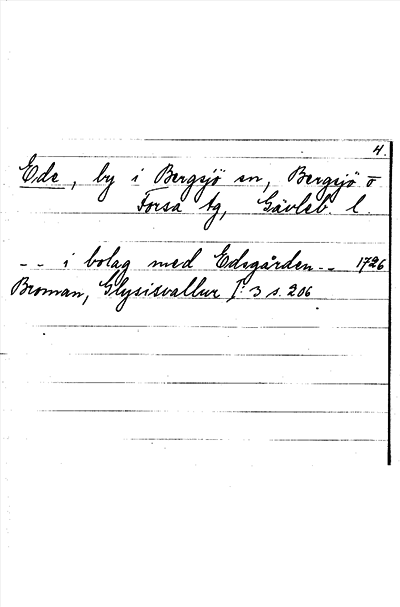 4.
Ede, by i Bergsjö sn, Bergsjö o
Forsa tg, Gävleb. l.
-- i bolag med Edsgården -- 1726
Broman, Glysisvallur I: 3 s. 206